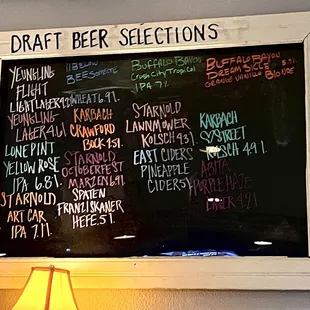 DRAFT BEER SELECTIONS
YEUNGLING
FLIGHT
LIGHT LAGER
YEUNGLING
LAGER
LONE PINT
YELLOW ROSE
IPA 6.8%
ST ARNOLD
ART CAR
IPA 7.1%
11 BELOW
BEESOMETE
WHEAT 6%
KARBACH
CRAWFORD
BOCK 4.5%
ST ARNOLD
OCTOBERFEST
MARZEN 6%
SPATEN
FRANZISKANER
HEFE 5%
BUFFALO BAYOU
CRUSH CITY TROPICAL
IPA 7%
ST ARNOLD
LAWNMOWER
KOLSCH 4.9%
EAST CIDERS
PINEAPPLE
CIDER 5%
BUFFALO BAYOU
DREAMSICLE
ORANGE VANILLA BLONDE
KARBACH
STREET
KOLSCH 4.9%
ABITA
PURPLE HAZE
LAGER 4.2%